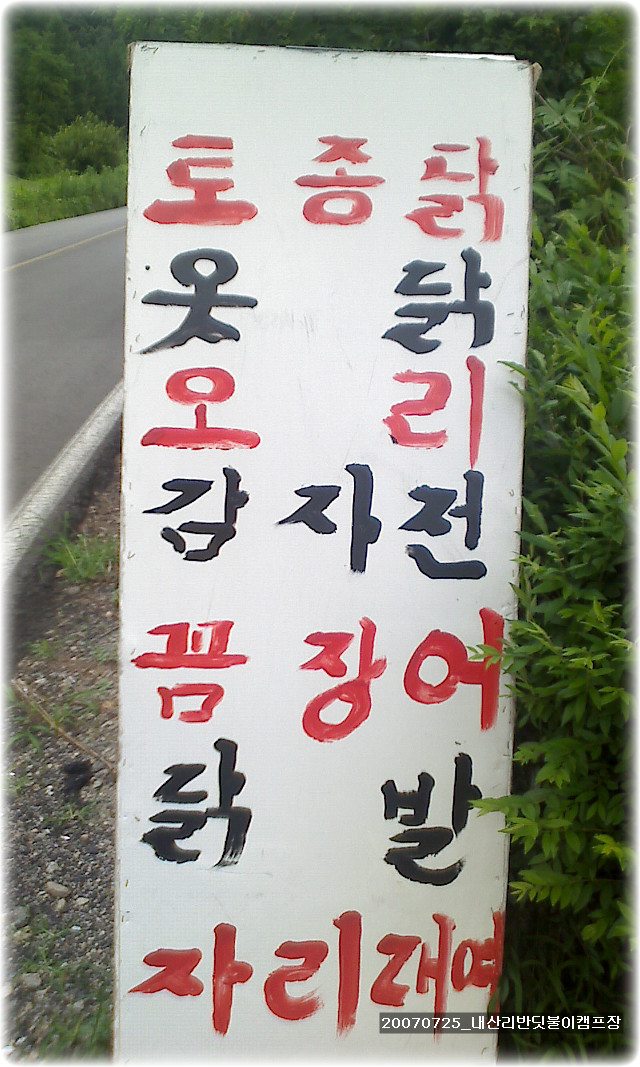 토 종 닭
옷 닭
오 리
감 자 전
끔 장 어
닭 발
자 리 래 여
20070725_내산리반딧불이캠프장